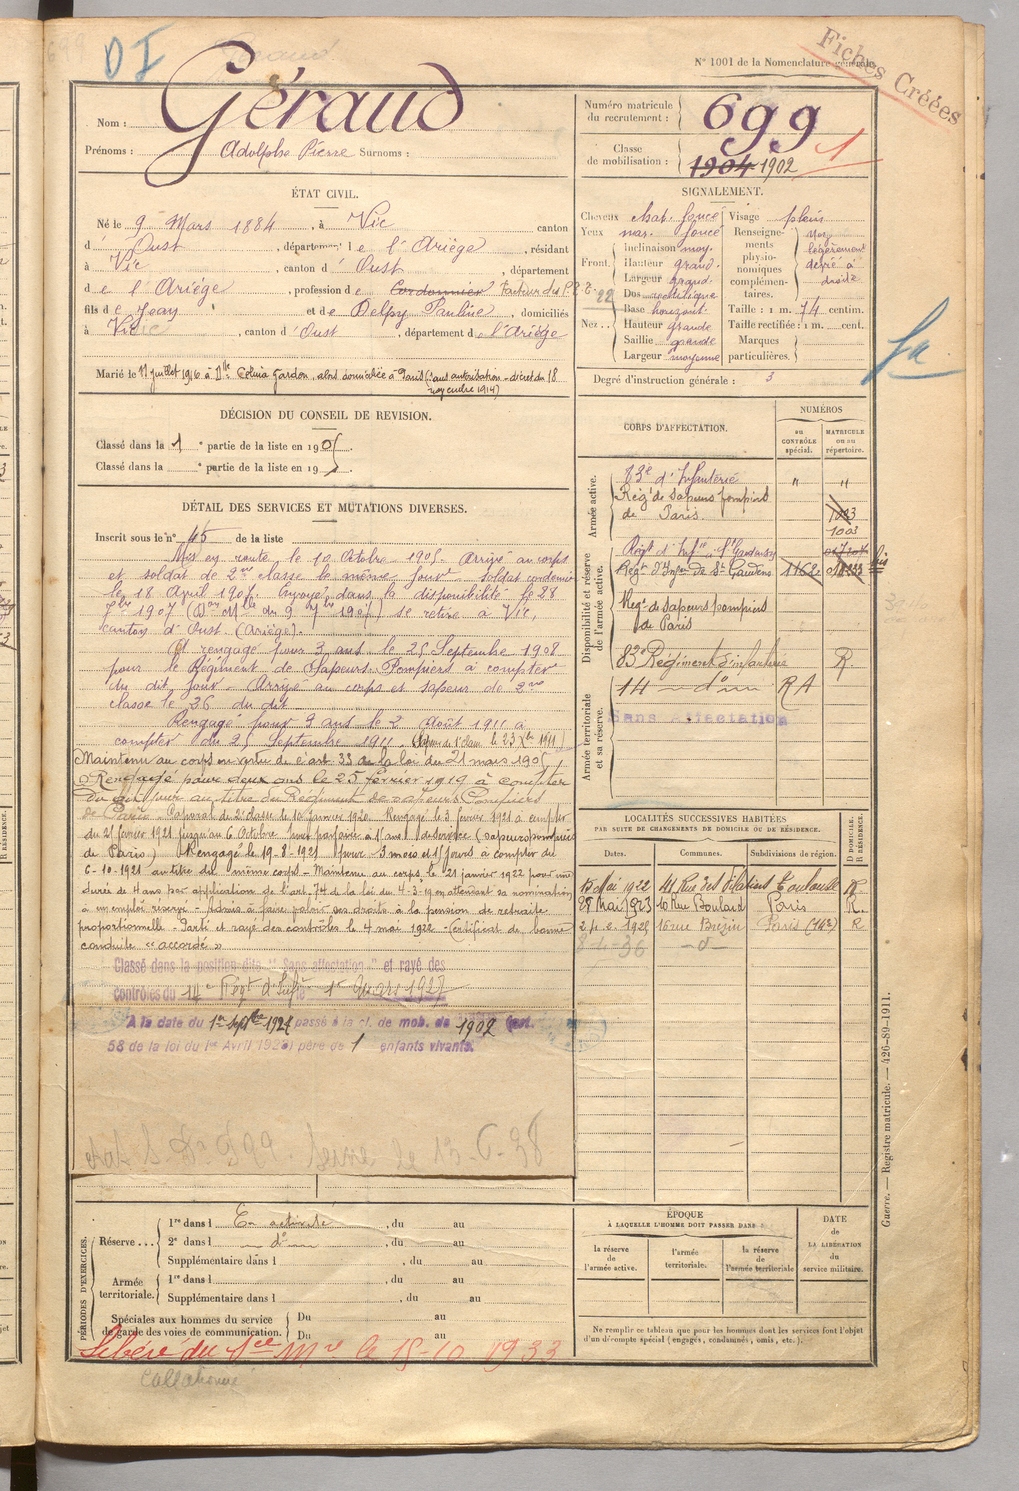 D I
N° 1001 de la Nomenclature générale
Fiches Créées
Nom : Géraud
Prénoms : Adolphe Pierre Surnoms :
Numéro matricule du recrutement : 699
Classe de mobilisation : 1904 1902
1
ÉTAT CIVIL.
Né le 9 Mars 1884, à Vic canton
d' Oust, département de l'Ariège, résidant
à Vic, canton d' Oust, département
de l'Ariège, profession de Cordonnier Facteur des P.T.T.
fils de Jean et de Delpy Pauline, domiciliés
à Vic, canton d' Oust, département de l'Ariège
Marié le 11 juillet 1916 à Dlle Gardon, alors domiciliée à Paris (sans autorisation - décret du 18
novembre 1914)
SIGNALEMENT.
Cheveux chat. foncé
Yeux mar. foncé
Front. Inclinaison moy.
Hauteur grand.
Largeur grand.
Nez. Dos rectiligne
Base horizont.
Hauteur grande
Saillie grande
Largeur moyenne
Visage plein
Renseignements physionomiques complémentaires. Nez légèrement dévié à droite
Taille : 1 m. 74 centim.
Taille rectifiée : 1 m. cent.
Marques particulières.
Degré d'instruction générale : 3
DÉCISION DU CONSEIL DE REVISION.
Classé dans la 1e partie de la liste en 1905.
Classé dans la e partie de la liste en 19
DÉTAIL DES SERVICES ET MUTATIONS DIVERSES.
Inscrit sous le n° 45 de la liste
Mis en route le 10 Octobre 1905. Arrivé au corps
et soldat de 2me classe le même jour. Soldat cordonnier
le 18 Avril 1907. Envoyé dans la disponibilité le 28
7bre 1907 (Don Mlle du 9 7bre 1907) se retire à Vic,
canton d'Oust (Ariège).
A rengagé pour 3 ans le 25 Septembre 1908
pour le Régiment de Sapeurs-Pompiers à compter
du dit jour. Arrivé au corps et sapeur de 2me
classe le 26 du dit.
Rengagé pour 3 ans le 2 Août 1911 à
compter du 25 Septembre 1911. (Sapeur de 1e classe le 23 Xbre 1911)
Maintenu au corps en vertu de l'art. 33 de la loi du 21 mars 1905
Rengagé pour deux ans le 25 février 1919 à compter
du dit jour au titre du Régiment de Sapeurs Pompiers
de Paris. Caporal de 2e classe le 10 janvier 1920. Rengagé le 3 février 1921 à compter
du 21 février 1921 jusqu'au 6 Octobre pour parfaire 15 ans de service (sapeurs pompiers
de Paris) Rengagé le 19-8-1921 pour 3 mois et 15 jours à compter du
6-10-1921 au titre du même corps - Maintenu au corps, le 21 janvier 1922 pour une
durée de 4 ans par application de l'art. 74 de la loi du 4-3-19 en attendant sa nomination
à un emploi réservé - Admis à faire valoir ses droits à la pension de retraite
proportionnelle - Parti et rayé des contrôles le 4 mai 1922 - (certificat de bonne
conduite « accordé »
Classé dans la position dite "Sans affectation" et rayé des
contrôles du 14e Régt d'Infie le 1er Mars 1927
A la date du 1er Septbre 1924 passé à la cl. de mob. de 1902 (art.
58 de la loi du 1er Avril 1923) père de 1 enfants vivants.
CORPS D'AFFECTATION.
NUMÉROS
au CONTRÔLE spécial.
MATRICULE ou au répertoire.
Armée active.
83e d'Infanterie " "
Régt de Sapeurs Pompiers de Paris. 1003
1003
Disponibilité et réserve de l'armée active.
Régt d'Infie de St Gaudens
Régt d'Infie de St Gaudens 1162
bis
Régt de Sapeurs pompiers de Paris
83e Régiment d'infanterie R
Armée territoriale et sa réserve.
14 — do — R A
Sans Affectation
LOCALITÉS SUCCESSIVES HABITÉES
PAR SUITE DE CHANGEMENTS DE DOMICILE OU DE RÉSIDENCE.
Dates. Communes. Subdivisions de région. D DOMICILE. R RÉSIDENCE.
15 Mai 1922 41 Rue des Filatiers Toulouse R
28 Mai 1923 16 Rue Boulard Paris R.
1925 16 rue Brézin Paris (14e) R
8-4-36 — d —
PÉRIODES D'EXERCICES.
Réserve ... 1re dans l En activité, du au
2e dans l — do —, du au
Supplémentaire dans l, du au
Armée territoriale. 1re dans l, du au
Supplémentaire dans l, du au
Spéciales aux hommes du service de garde des voies de communication. Du au
Du au
Libéré du Sce Mre le 15-10 1933
ÉPOQUE
À LAQUELLE L'HOMME DOIT PASSER DANS :
la réserve de l'armée active.
l'armée territoriale.
la réserve de l'armée territoriale
DATE de LA LIBÉRATION du service militaire.
Ne remplir ce tableau que pour les hommes dont les services font l'objet
d'un décompte spécial (engagés, condamnés, omis, etc.).
Guerre. — Registre matricule. — 426-89-1911.